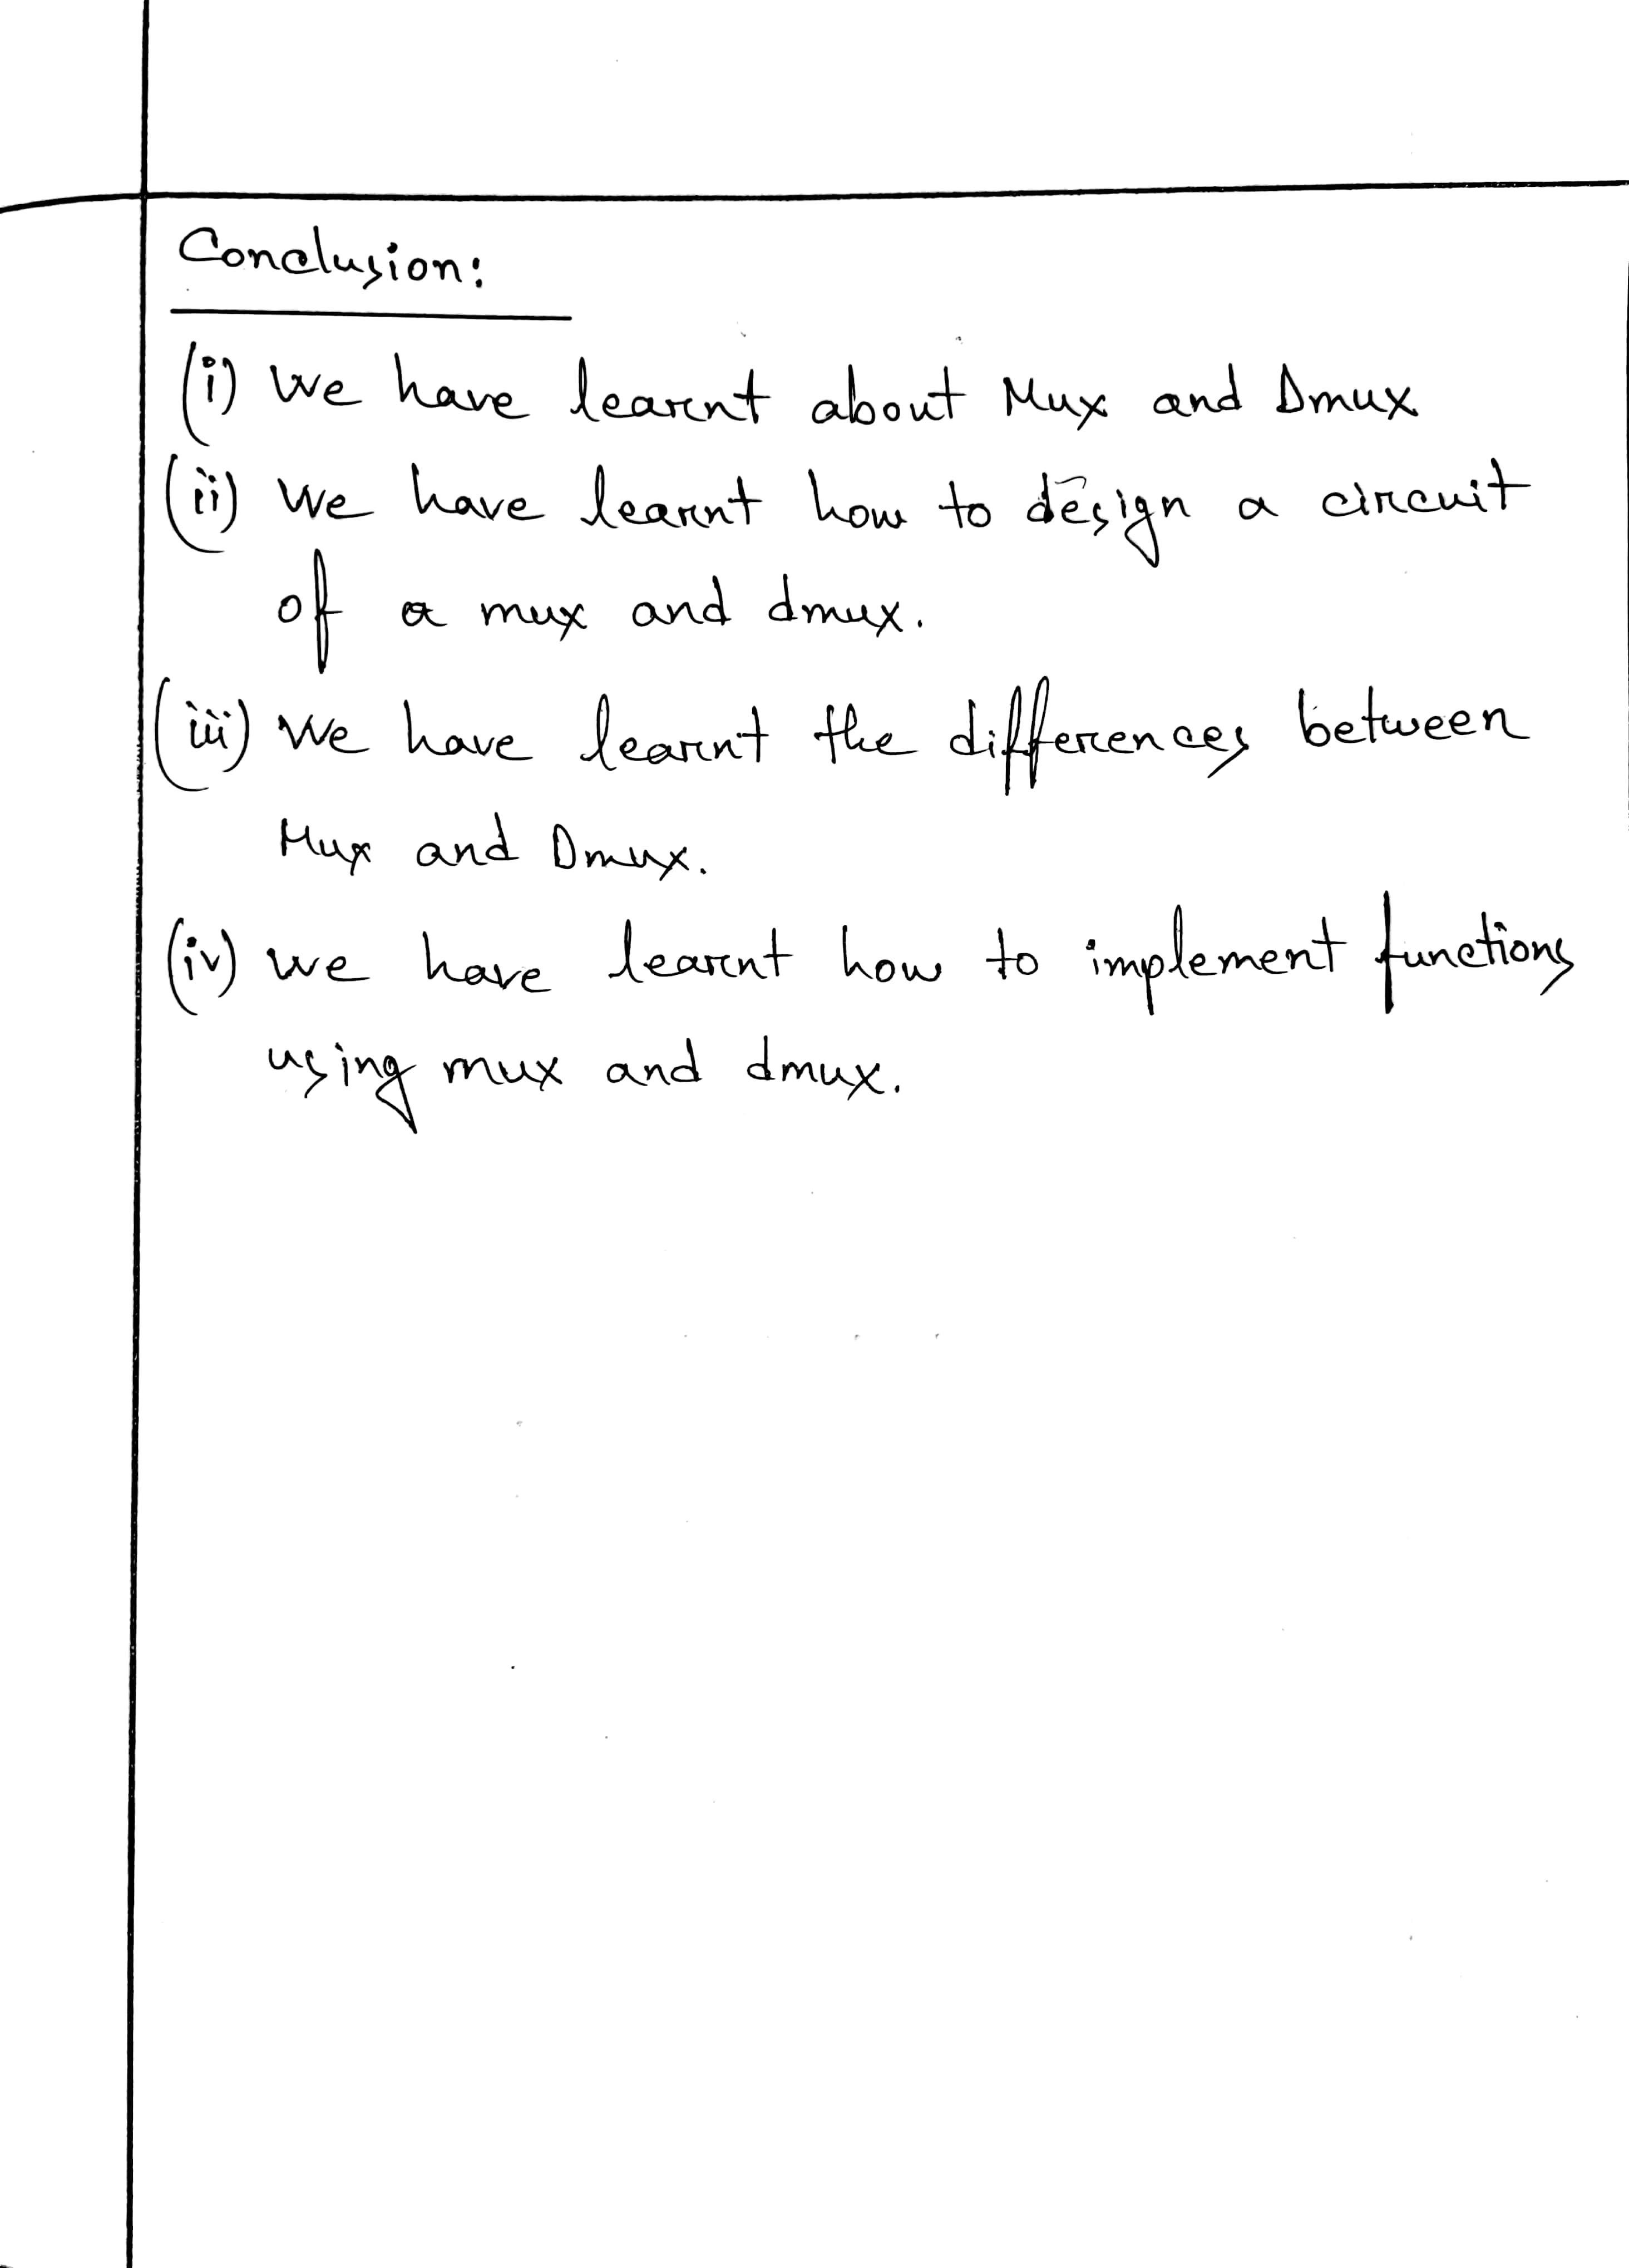 Conclusion:
(i) We have learnt about Mux and Dmux
(ii) We have learnt how to design a circuit
of a mux and dmux.
(iii) We have learnt the differences between
Mux and Dmux.
(iv) We have learnt how to implement functions
using mux and dmux.